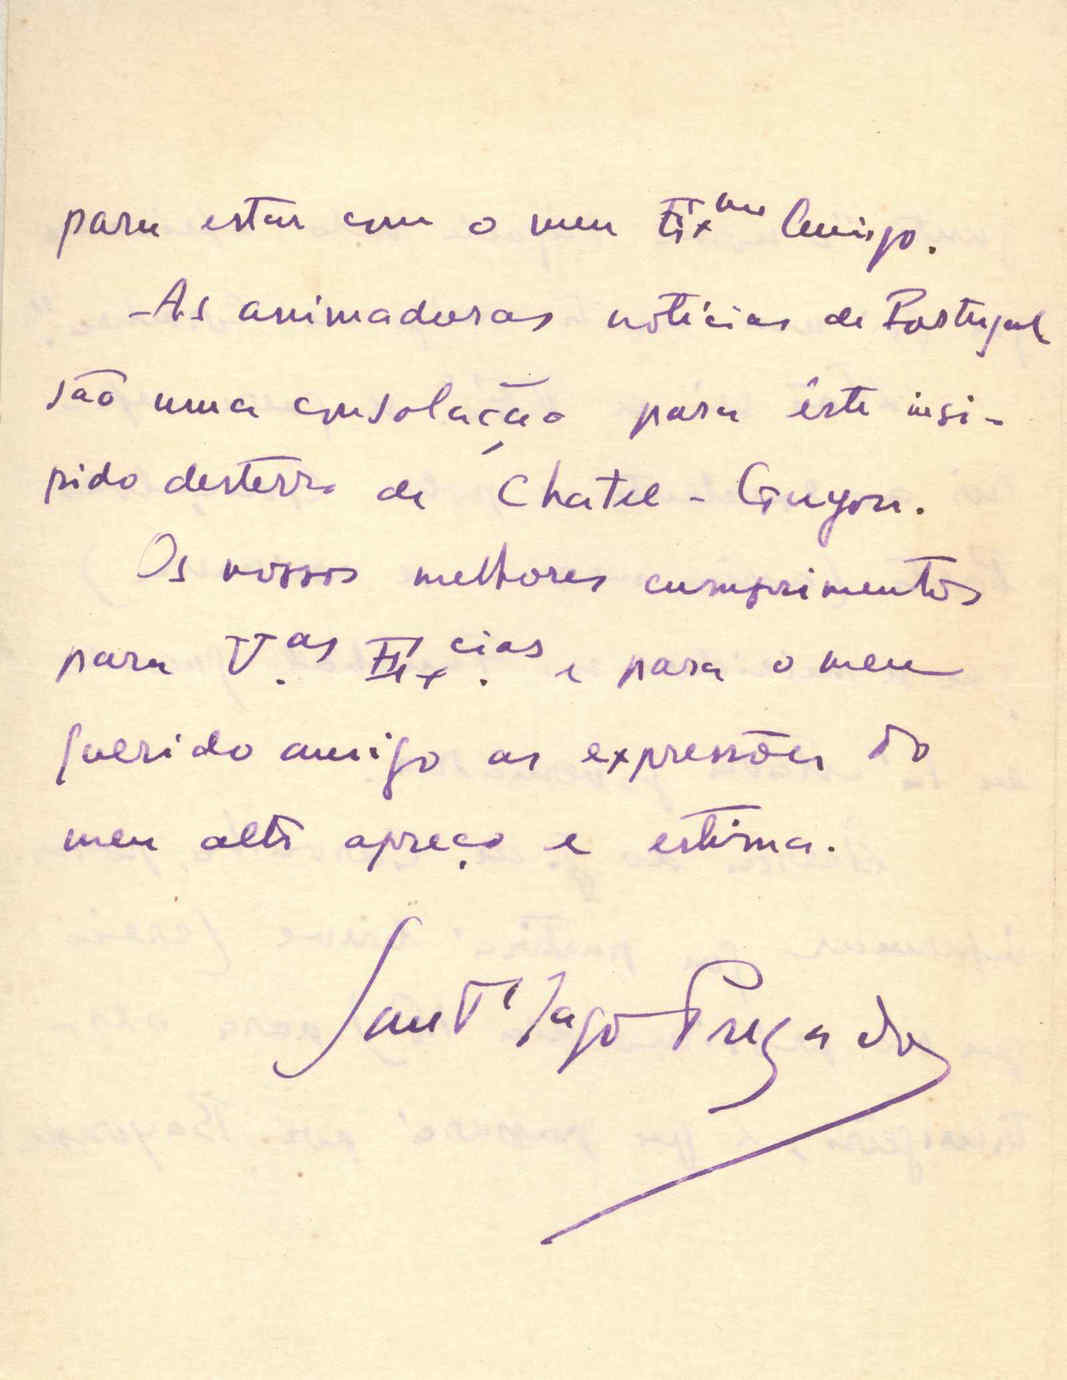 para estar com o meu Exmo Amigo.
- As animadoras notícias de Portugal
são uma consolação para êste insi-
pido desterro de Chatel - Guyon.
Os nossos melhores cumprimentos
para V.as Ex.cias e para o meu
querido amigo as expressões do
meu alto apreço e estima.
Sant'Iago Prezado